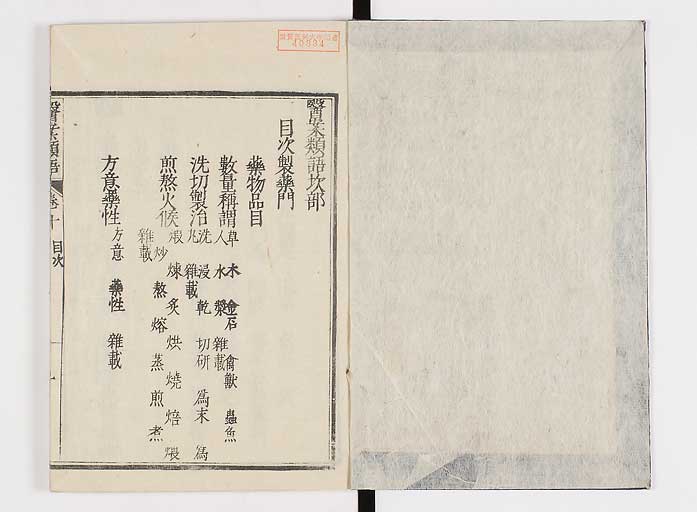 醫業類語坎部
目次製藥門
藥物品目
草 木 金石 禽獸 蟲魚
人 水 漿 雜載
數量稱謂
洗切製治
洗 浸 乾 切研 爲末 爲
雜載
煎熬火候
煅 煉 炙 烘 燒 焙 煨
炒 熬 熔 蒸 煎 煮
雜載
方意藥性
方意 藥性 雜載
類語
卷十
目次
40894